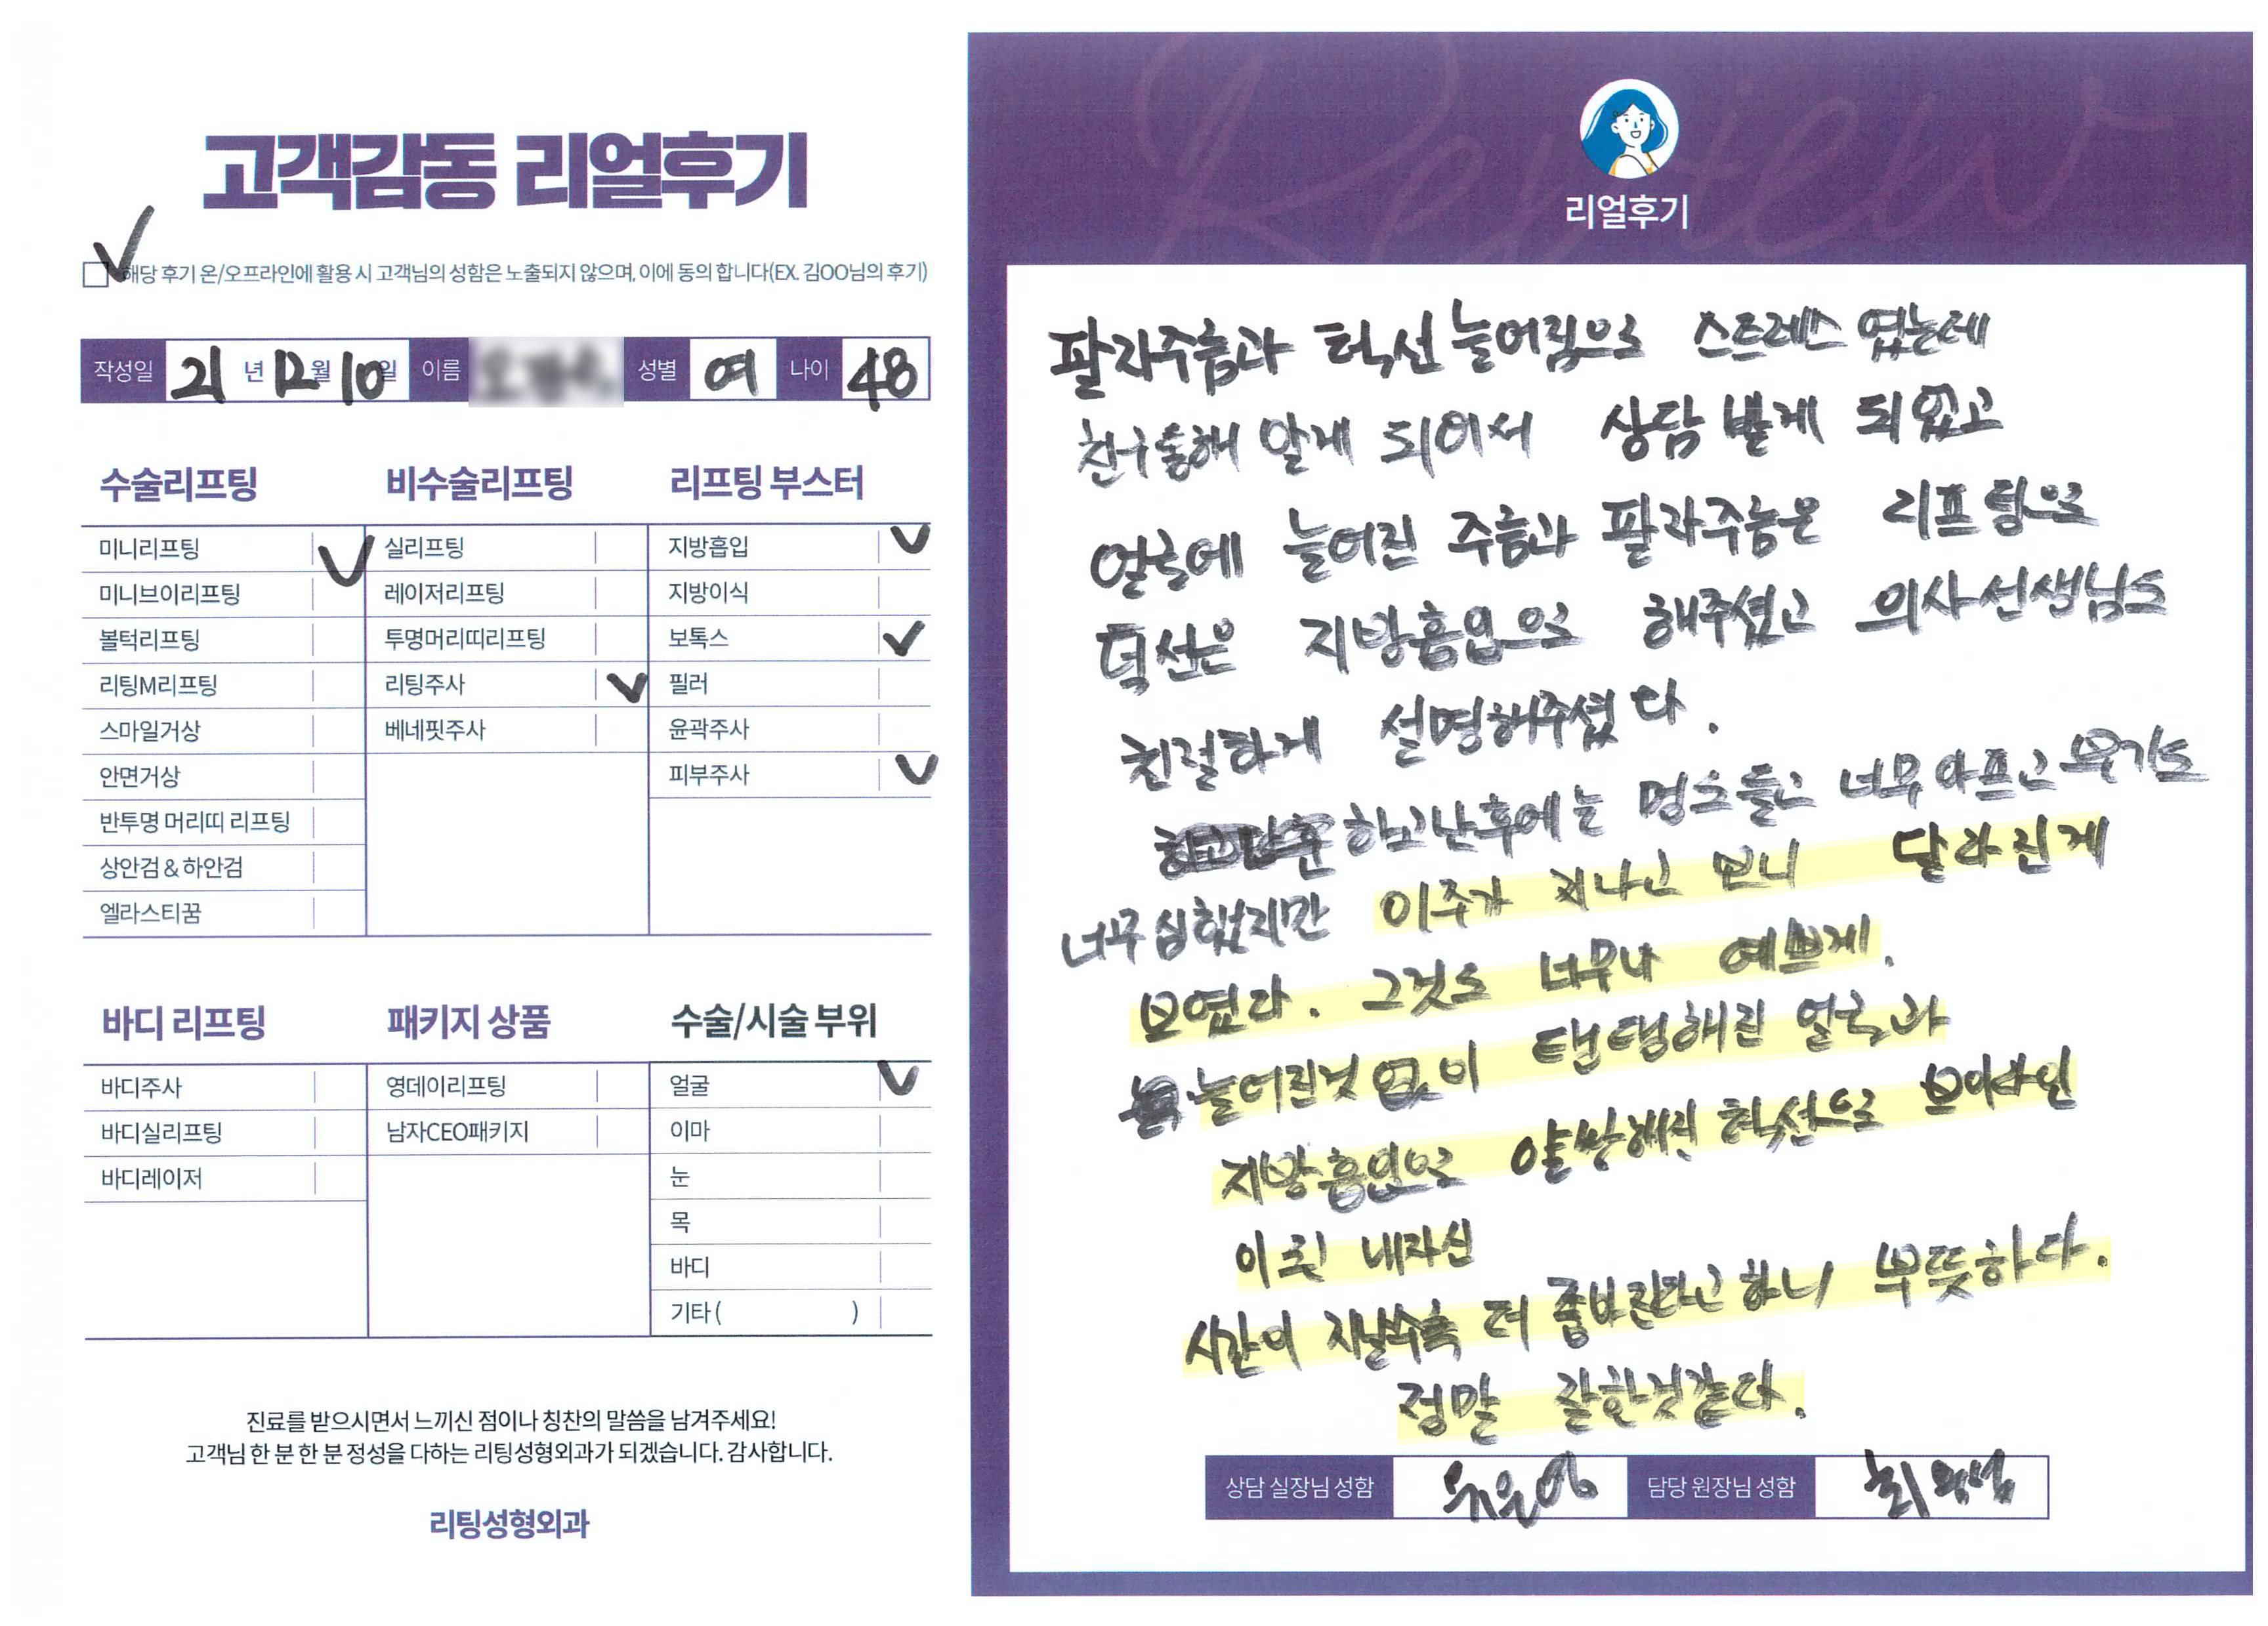 고객감동 리얼후기
해당 후기 온/오프라인에 활용 시 고객님의 성함은 노출되지 않으며, 이에 동의 합니다(EX. 김OO님의 후기)
작성일 21 년 12 월 10 일 이름 성별 여 나이 48
수술리프팅
미니리프팅
미니브이리프팅
볼턱리프팅
리팅M리프팅
스마일거상
안면거상
반투명 머리띠 리프팅
상안검 & 하안검
엘라스티꿈
비수술리프팅
실리프팅
레이저리프팅
투명머리띠리프팅
리팅주사
베네핏주사
리프팅 부스터
지방흡입
지방이식
보톡스
필러
윤곽주사
피부주사
바디 리프팅
바디주사
바디실리프팅
바디레이저
패키지 상품
영데이리프팅
남자CEO패키지
수술/시술 부위
얼굴
이마
눈
목
바디
기타 ( )
진료를 받으시면서 느끼신 점이나 칭찬의 말씀을 남겨주세요!
고객님 한 분 한 분 정성을 다하는 리팅성형외과가 되겠습니다. 감사합니다.
리팅성형외과
Review
리얼후기
팔자주름과 턱선 늘어짐으로 스트레스 였는데
친구통해 알게 되어서 상담 받게 되었고
얼굴에 늘어진 주름과 팔자주름은 리프팅으로
턱선은 지방흡입으로 해주셨고 의사선생님도
친절하게 설명해주셨다.
하고난후에는 멍도들고 너무 아프고 붓기도
너무 심했지만 이주가 지나고 보니 달라진게
보였다. 그것도 너무나 예쁘게.
늘어진것 없이 탱탱해진 얼굴과
지방흡입으로 얄쌍해진 턱선으로 브이라인
이 된 내자신
시간이 지날수록 더 좋아진다고 하니 뿌듯하다.
정말 잘한것같다.
상담 실장님 성함 담당 원장님 성함